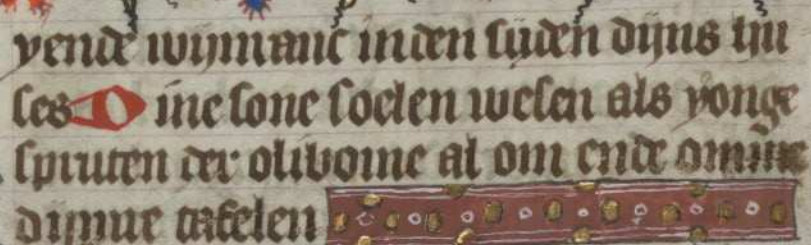 yende wijmanc inden sijden dijns hu
ses Dine sone soelen wesen als yonge
spruten der olibome al om ende omme
dijnne tafelen